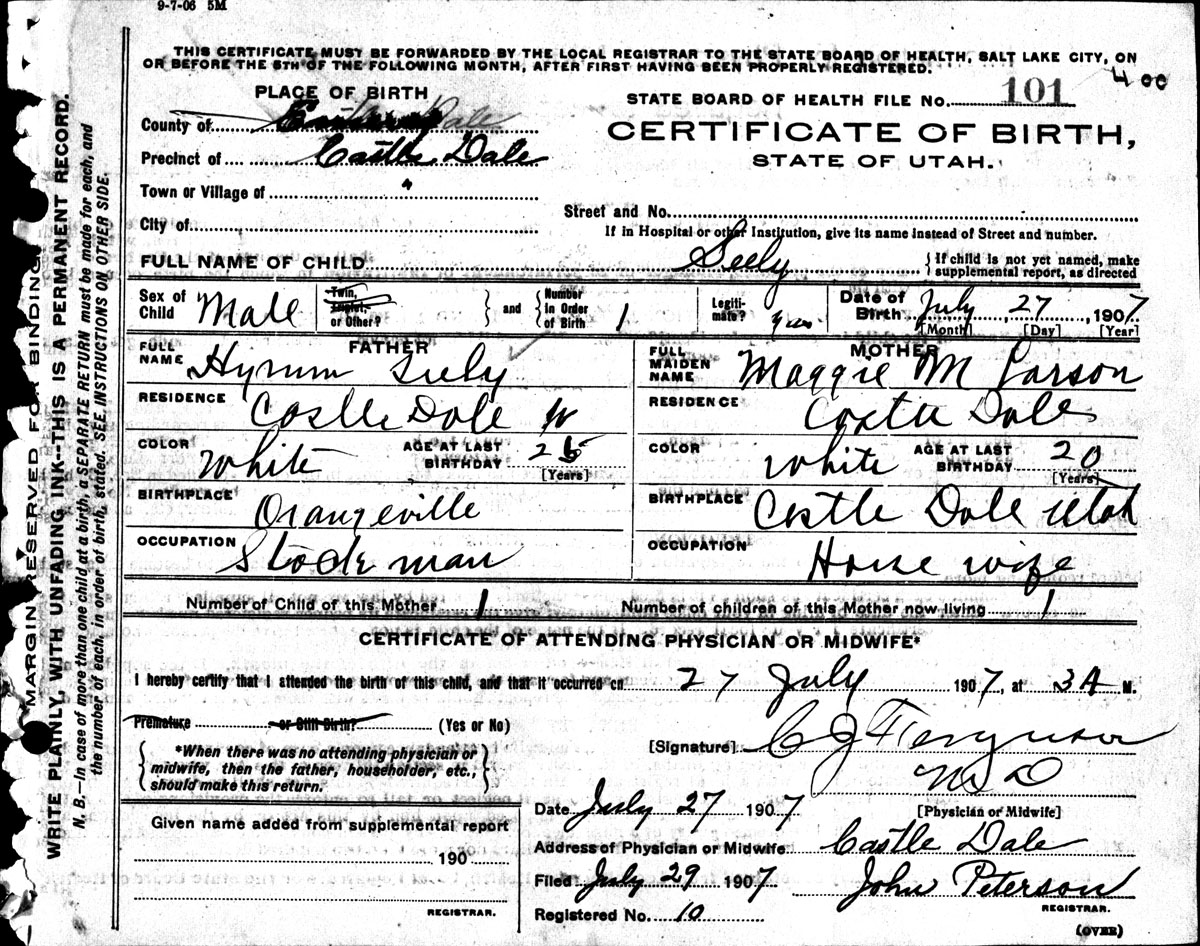 9-7-06 5M
THIS CERTIFICATE MUST BE FORWARDED BY THE LOCAL REGISTRAR TO THE STATE BOARD OF HEALTH, SALT LAKE CITY, ON
OR BEFORE THE 5TH OF THE FOLLOWING MONTH, AFTER FIRST HAVING BEEN PROPERLY REGISTERED.
4 00
PLACE OF BIRTH
STATE BOARD OF HEALTH FILE No. 101
County of Dale
CERTIFICATE OF BIRTH,
Precinct of Castle Dale
STATE OF UTAH.
Town or Village of "
Street and No.
City of
If in Hospital or other Institution, give its name instead of Street and number.
FULL NAME OF CHILD Seely { If child is not yet named, make supplemental report, as directed
Sex of Child Male Twin, Triplet, or Other? } and { Number in Order of Birth 1 Legitimate? yes Date of Birth July 27, 1907
[Month] [Day] [Year]
FATHER
MOTHER
FULL NAME Hyrum Seely
FULL MAIDEN NAME Maggie M Larson
RESIDENCE Castle Dale
RESIDENCE Castle Dale
COLOR White AGE AT LAST BIRTHDAY 26 [Years]
COLOR White AGE AT LAST BIRTHDAY 20 [Years]
BIRTHPLACE Orangeville
BIRTHPLACE Castle Dale Utah
OCCUPATION Stock man
OCCUPATION House wife
Number of Child of this Mother 1 Number of children of this Mother now living 1
CERTIFICATE OF ATTENDING PHYSICIAN OR MIDWIFE*
I hereby certify that I attended the birth of this child, and that it occurred on 27 July 1907, at 3 A M.
Premature or Still Birth? (Yes or No)
*When there was no attending physician or
midwife, then the father, householder, etc.,
should make this return.
[Signature] C J Ferguson
M D
[Physician or Midwife]
Date July 27 1907
Given name added from supplemental report
190
REGISTRAR.
Address of Physician or Midwife Castle Dale
Filed July 29 1907 John Peterson
REGISTRAR.
Registered No. 10
(OVER)
MARGIN RESERVED FOR BINDING.
WRITE PLAINLY, WITH UNFADING INK--THIS IS A PERMANENT RECORD.
N. B.—In case of more than one child at a birth, a SEPARATE RETURN must be made for each, and
the number of each, in order of birth, stated. SEE INSTRUCTIONS ON OTHER SIDE.